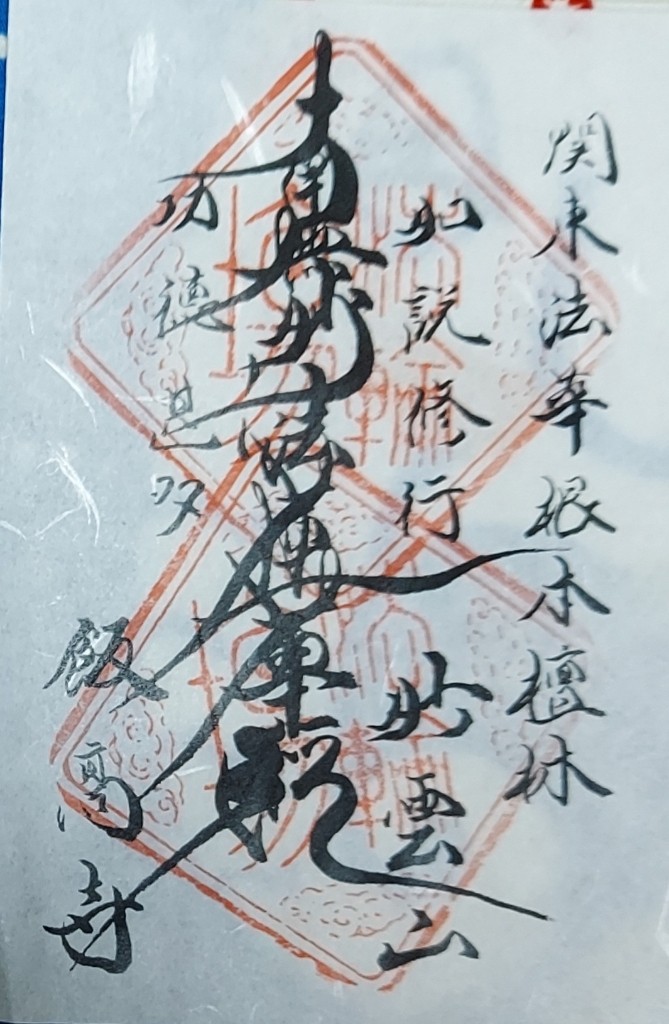 関東法華根本檀林
如説修行
妙雲山
南無妙法蓮華経
功徳
飯高寺